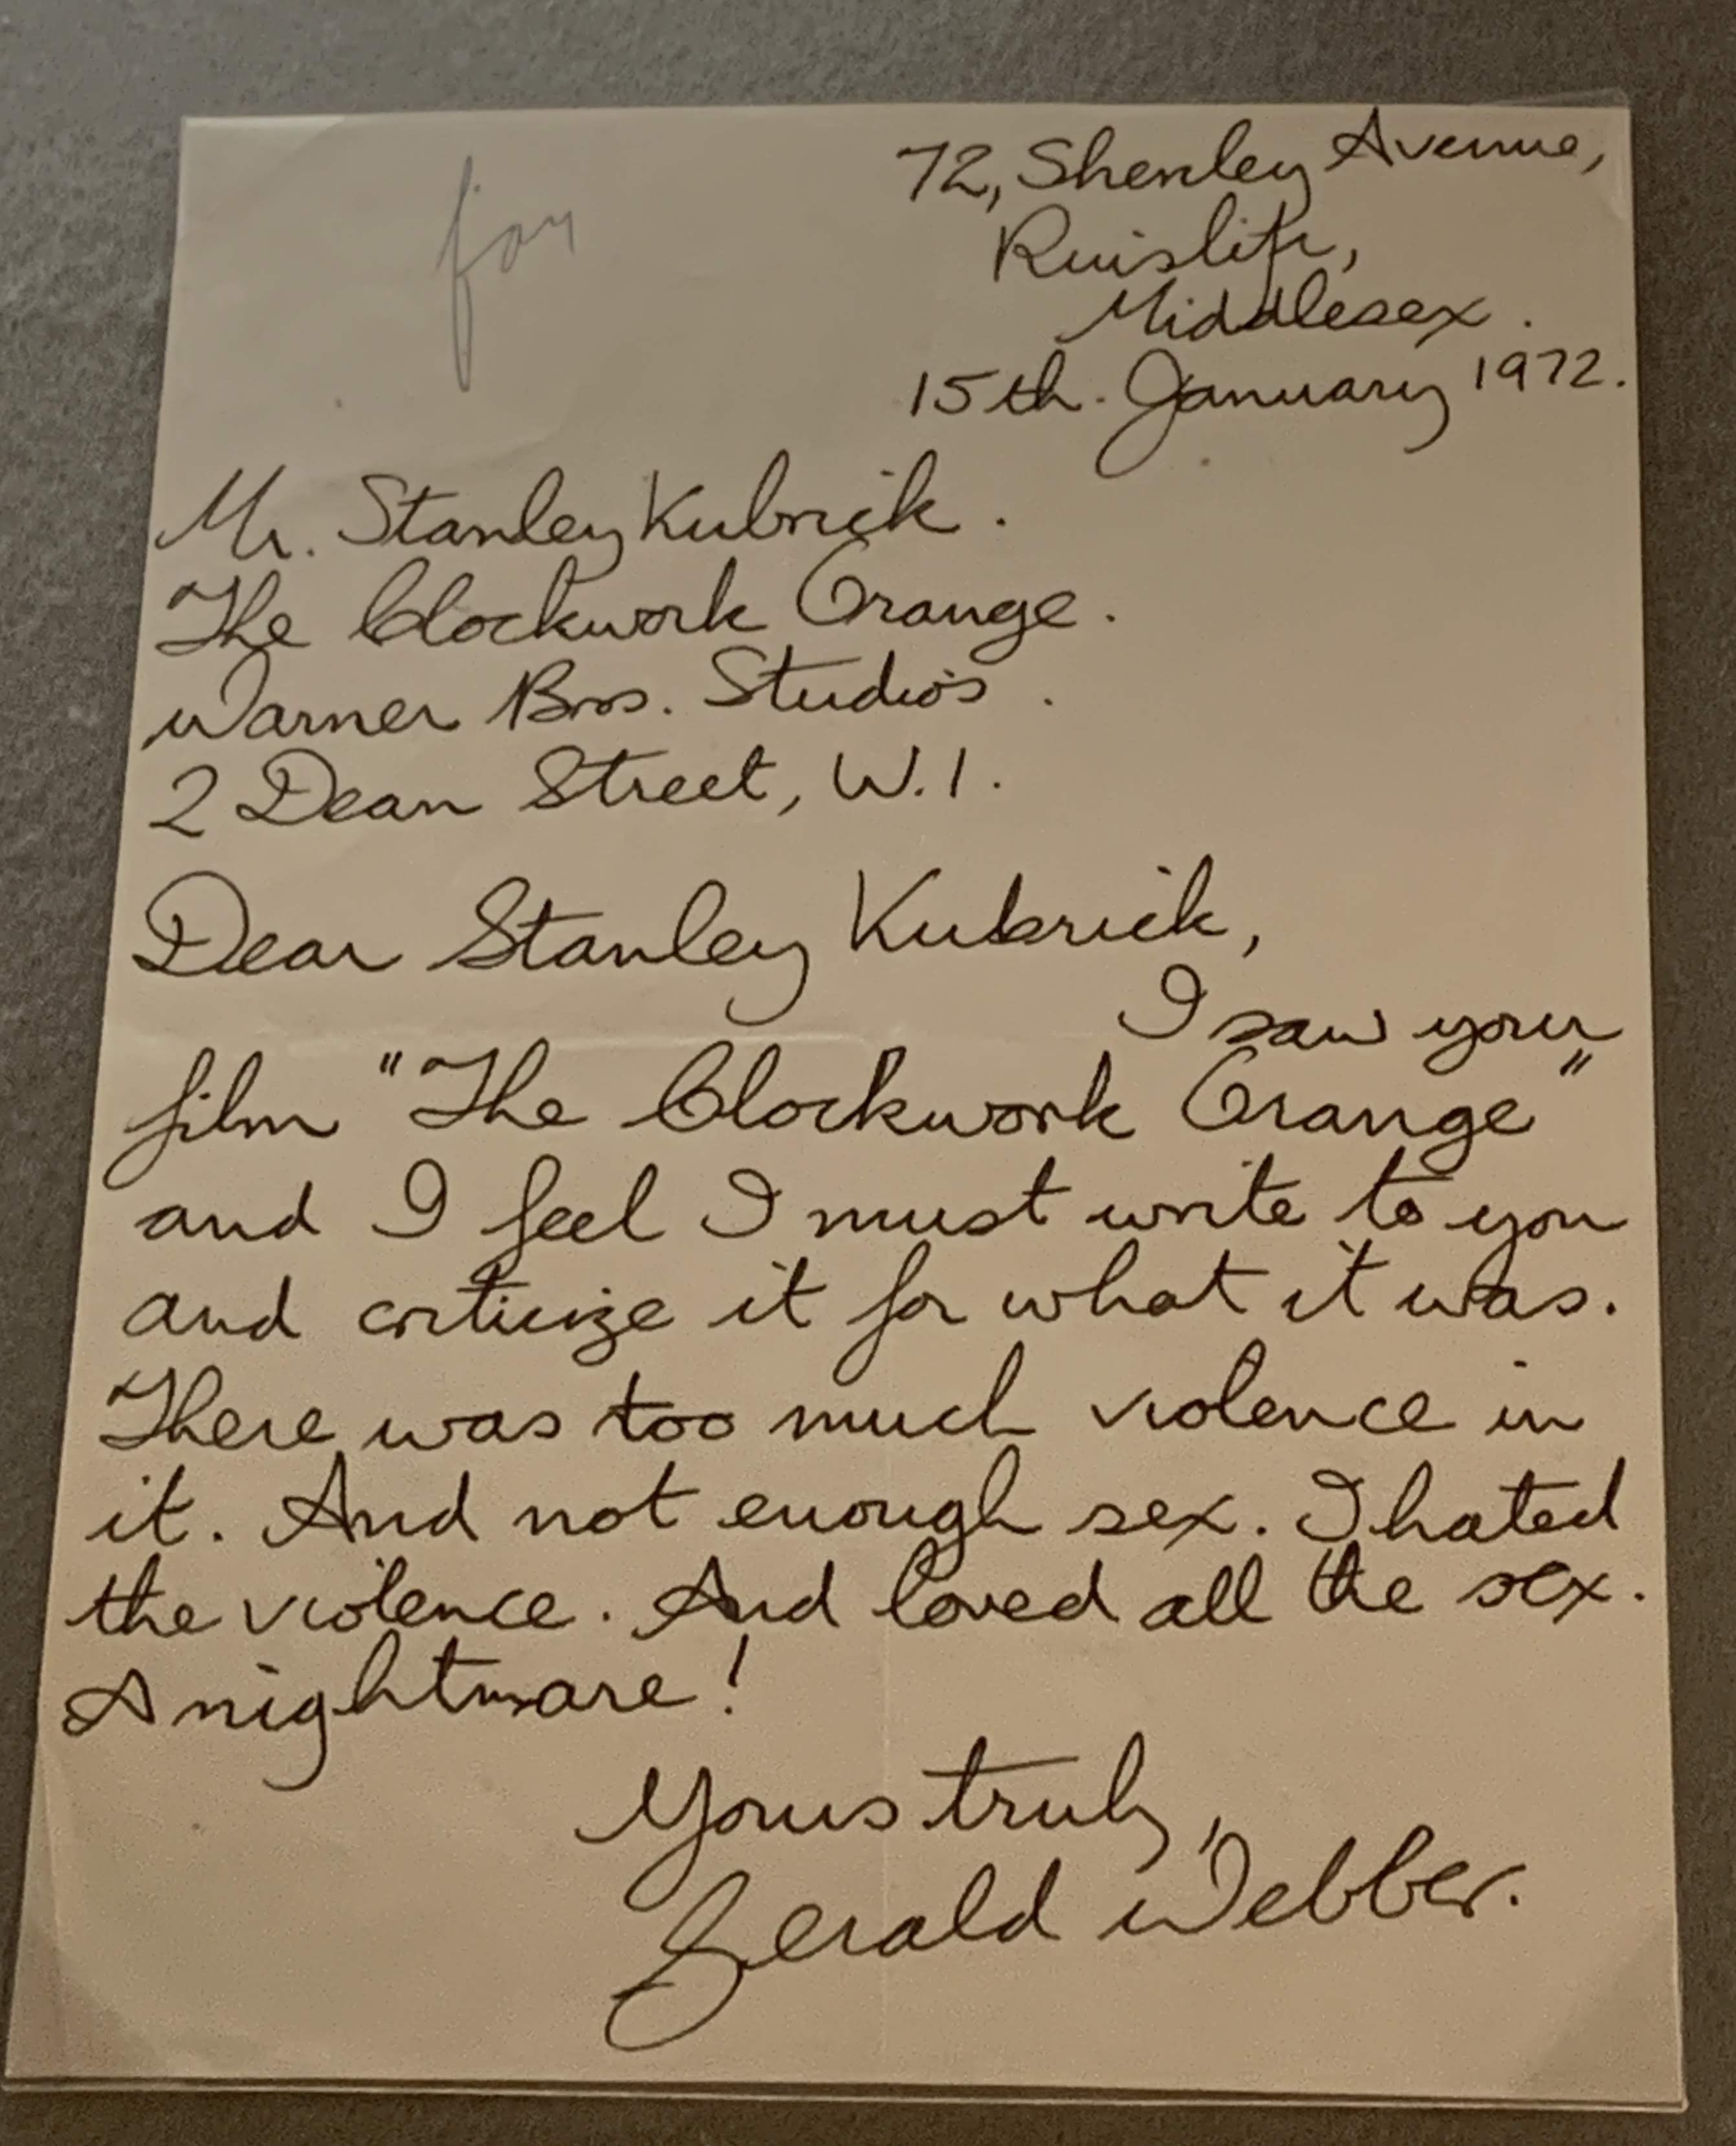 72, Shenley Avenue,
Ruislip,
Middlesex.
15th. January 1972.
Mr. Stanley Kubrick.
The Clockwork Orange.
Warner Bros. Studio's.
2 Dean Street, W.1.
Dear Stanley Kubrick,
I saw your
film "The Clockwork Orange"
and I feel I must write to you
and criticize it for what it was.
There was too much violence in
it. And not enough sex. I hated
the violence. And loved all the sex.
A nightmare!
Yours truly,
Gerald Webber.